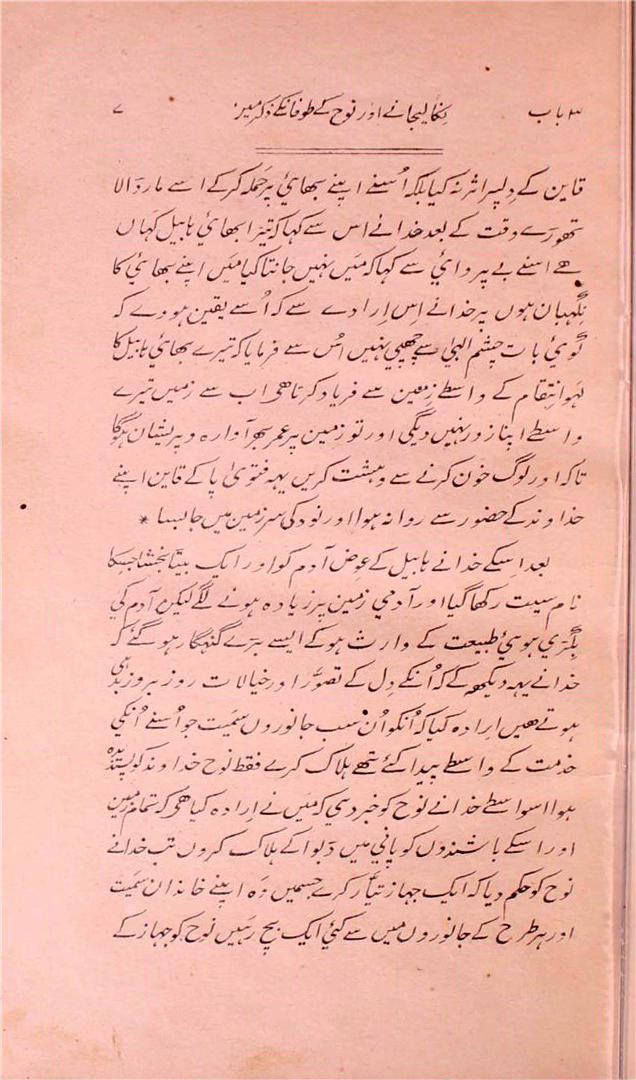 ۳ باب نکالیجانے اور نوح کے طوفانکے ذکر مین ۷
قاین کے دِلپر اثر نہ کیا بلکہ اُسنے اپنے بھائی پر حَملہ کر کے اسے مار ڈالا
تھوڑے وقت کے بعد خدا نے اس سے کہا کہ تیرا بھائی ہابیل کہاں
ھے اسنے بے پروائی سے کہا کہ مَیں نہیں جانتا کیا مَیں اپنے بھائی کا
نِگہبان ہوں پر خدا نے اِس اِرادے سے کہ اُسے یقین ہووے کہ
کوئی بات چشم الٰہی سے چھپی نہیں اُس سے فرمایا کہ تیرے بھائی ہابیل کا
لہو اِنتقام کے واسطے زمین سے فریاد کرتا ھی اب سے زمین تیرے
واسطے اپنا زور نہیں دیگی اور تو زمین پر عمر بھر آوارہ و پریشان ہوگا
تاکہ اور لوگ خون کرنے سے دہشت کریں یہہ فتویٰ پا کے قاین اپنے
خداوند کے حضور سے روانہ ہوا اور نود کی سرزمین میں جا بسا *
بعد اِسکے خدا نے ہابیل کے عِوض آدم کو اور ایک بیٹا بخشا جسکا
نام سیت رکھا گیا اور آدمی زمین پر زیادہ ہونے لگے لیکن آدم کی
بِگڑی ہوئی طبیعت کے وارث ہو کے ایسے بڑے گنہگار ہو گئے کہ
خدا نے یہہ دیکھہ کے کہ اُنکے دِل کے تصوّر اور خیالات روز بروز بد ہی
ہوتے ھیں اِرادہ کیا کہ اُنکو اُن سب جانوروں سمَیت جو اُسنے اُنکی
خدمت کے واسطے پیدا کئے تھے ہلاک کرے فقط نوح خداوند کو پسندیدہ
ہوا اسواسطے خدا نے نوح کو خبر دی کہ مَیں نے اِرادہ کیا ھی کہ تمام زمین
اور اسکے باشندوں کو پانی میں ڈبوا کے ہلاک کروں تب خدا نے
نوح کو حکم دیا کہ ایک جہاز تیّار کرے جسمیں وہ اپنے خاندان سمَیت
اور ہر طرح کے جانوروں میں سے کئی ایک بچ رہیں نوح کو جہاز کے